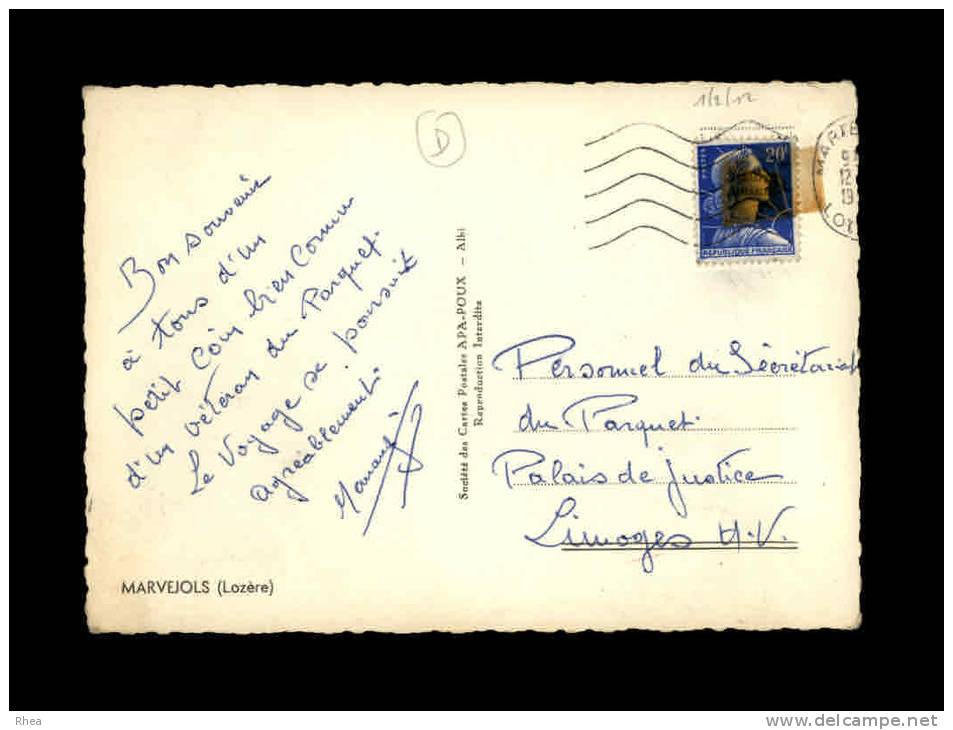 1/2/12
D
20F
POSTES
REPUBLIQUE FRANÇAISE
MARVE
12
19
LOZ
Bon souvenir
à tous d'un
petit Coin bien Connu
d'un vétéran du Parquet.
Le Voyage se poursuit
agréablement.
MARVEJOLS (Lozère)
Société des Cartes Postales APA-POUX - Albi
Reproduction Interdite
Personnel du Sécrétariat
du Parquet
Palais de Justice
Limoges H.V.
Rhea
www.delcampe.net